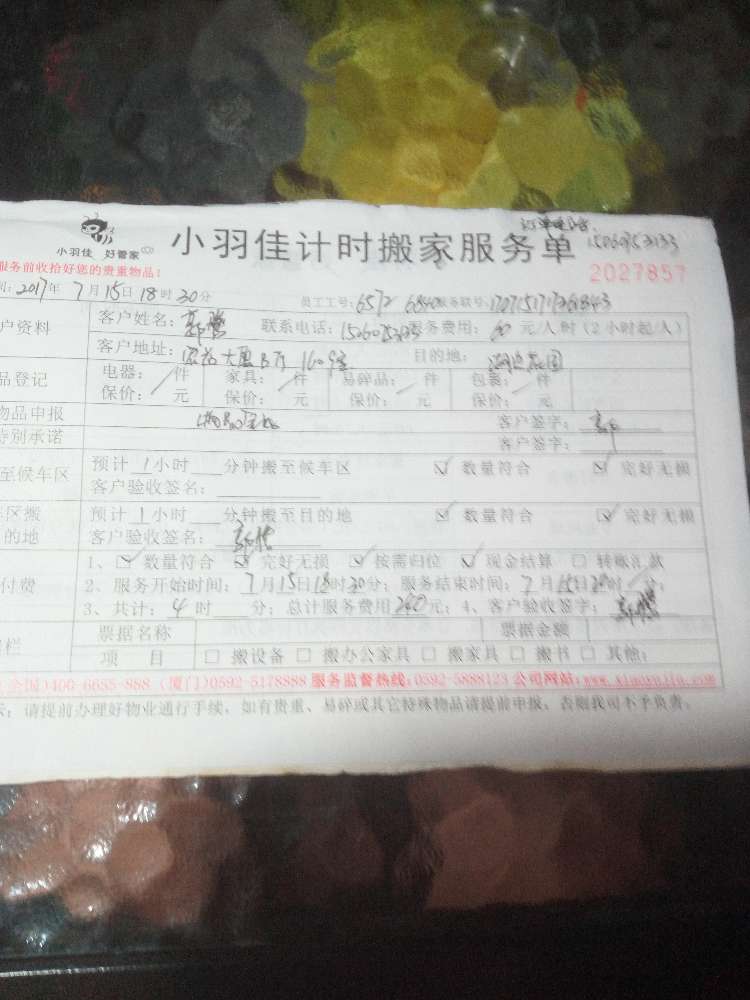 订单电话
小羽佳 好管家 小羽佳计时搬家服务单 15060753133
服务前收拾好您的贵重物品! 2027857
2017年 7月15日18时30分 员工工号: 6572 6840 服务联号:
户资料 客户姓名: 联系电话: 服务费用: 60 元/人时 (2小时起/人)
客户地址: 大厦B厅 1609室 目的地: 花园
品登记 电器: 件 家具: 件 易碎品: 件 包裹: 件
保价: 元 保价: 元 保价: 元 保价: 元
物品申报 客户签字:
特别承诺 客户签字:
至候车区 预计 1 小时 分钟搬至候车区 ☑ 数量符合 ☑ 完好无损
客户验收签名:
区搬 预计 1 小时 分钟搬至目的地 ☑ 数量符合 ☑ 完好无损
的地 客户验收签名:
1、☑ 数量符合 ☑ 完好无损 ☑ 按需归位 ☑ 现金结算 □ 转账汇款
付费 2、服务开始时间: 7月15日18时30分; 服务结束时间: 7月15日 时 分;
3、共计: 4 时 分; 总计服务费用 240 元; 4、客户验收签字:
票据名称 票据金额
栏 项 目 □ 搬设备 □ 搬办公家具 □ 搬家具 □ 搬书 □ 其他:
全国)400-6655-888 (厦门)0592-5178888 服务监督热线:0592-5888123 公司网站:www.xiaoyujia.com
示: 请提前办理好物业通行手续, 如有贵重、易碎或其它特殊物品请提前申报, 否则我司不予负责。